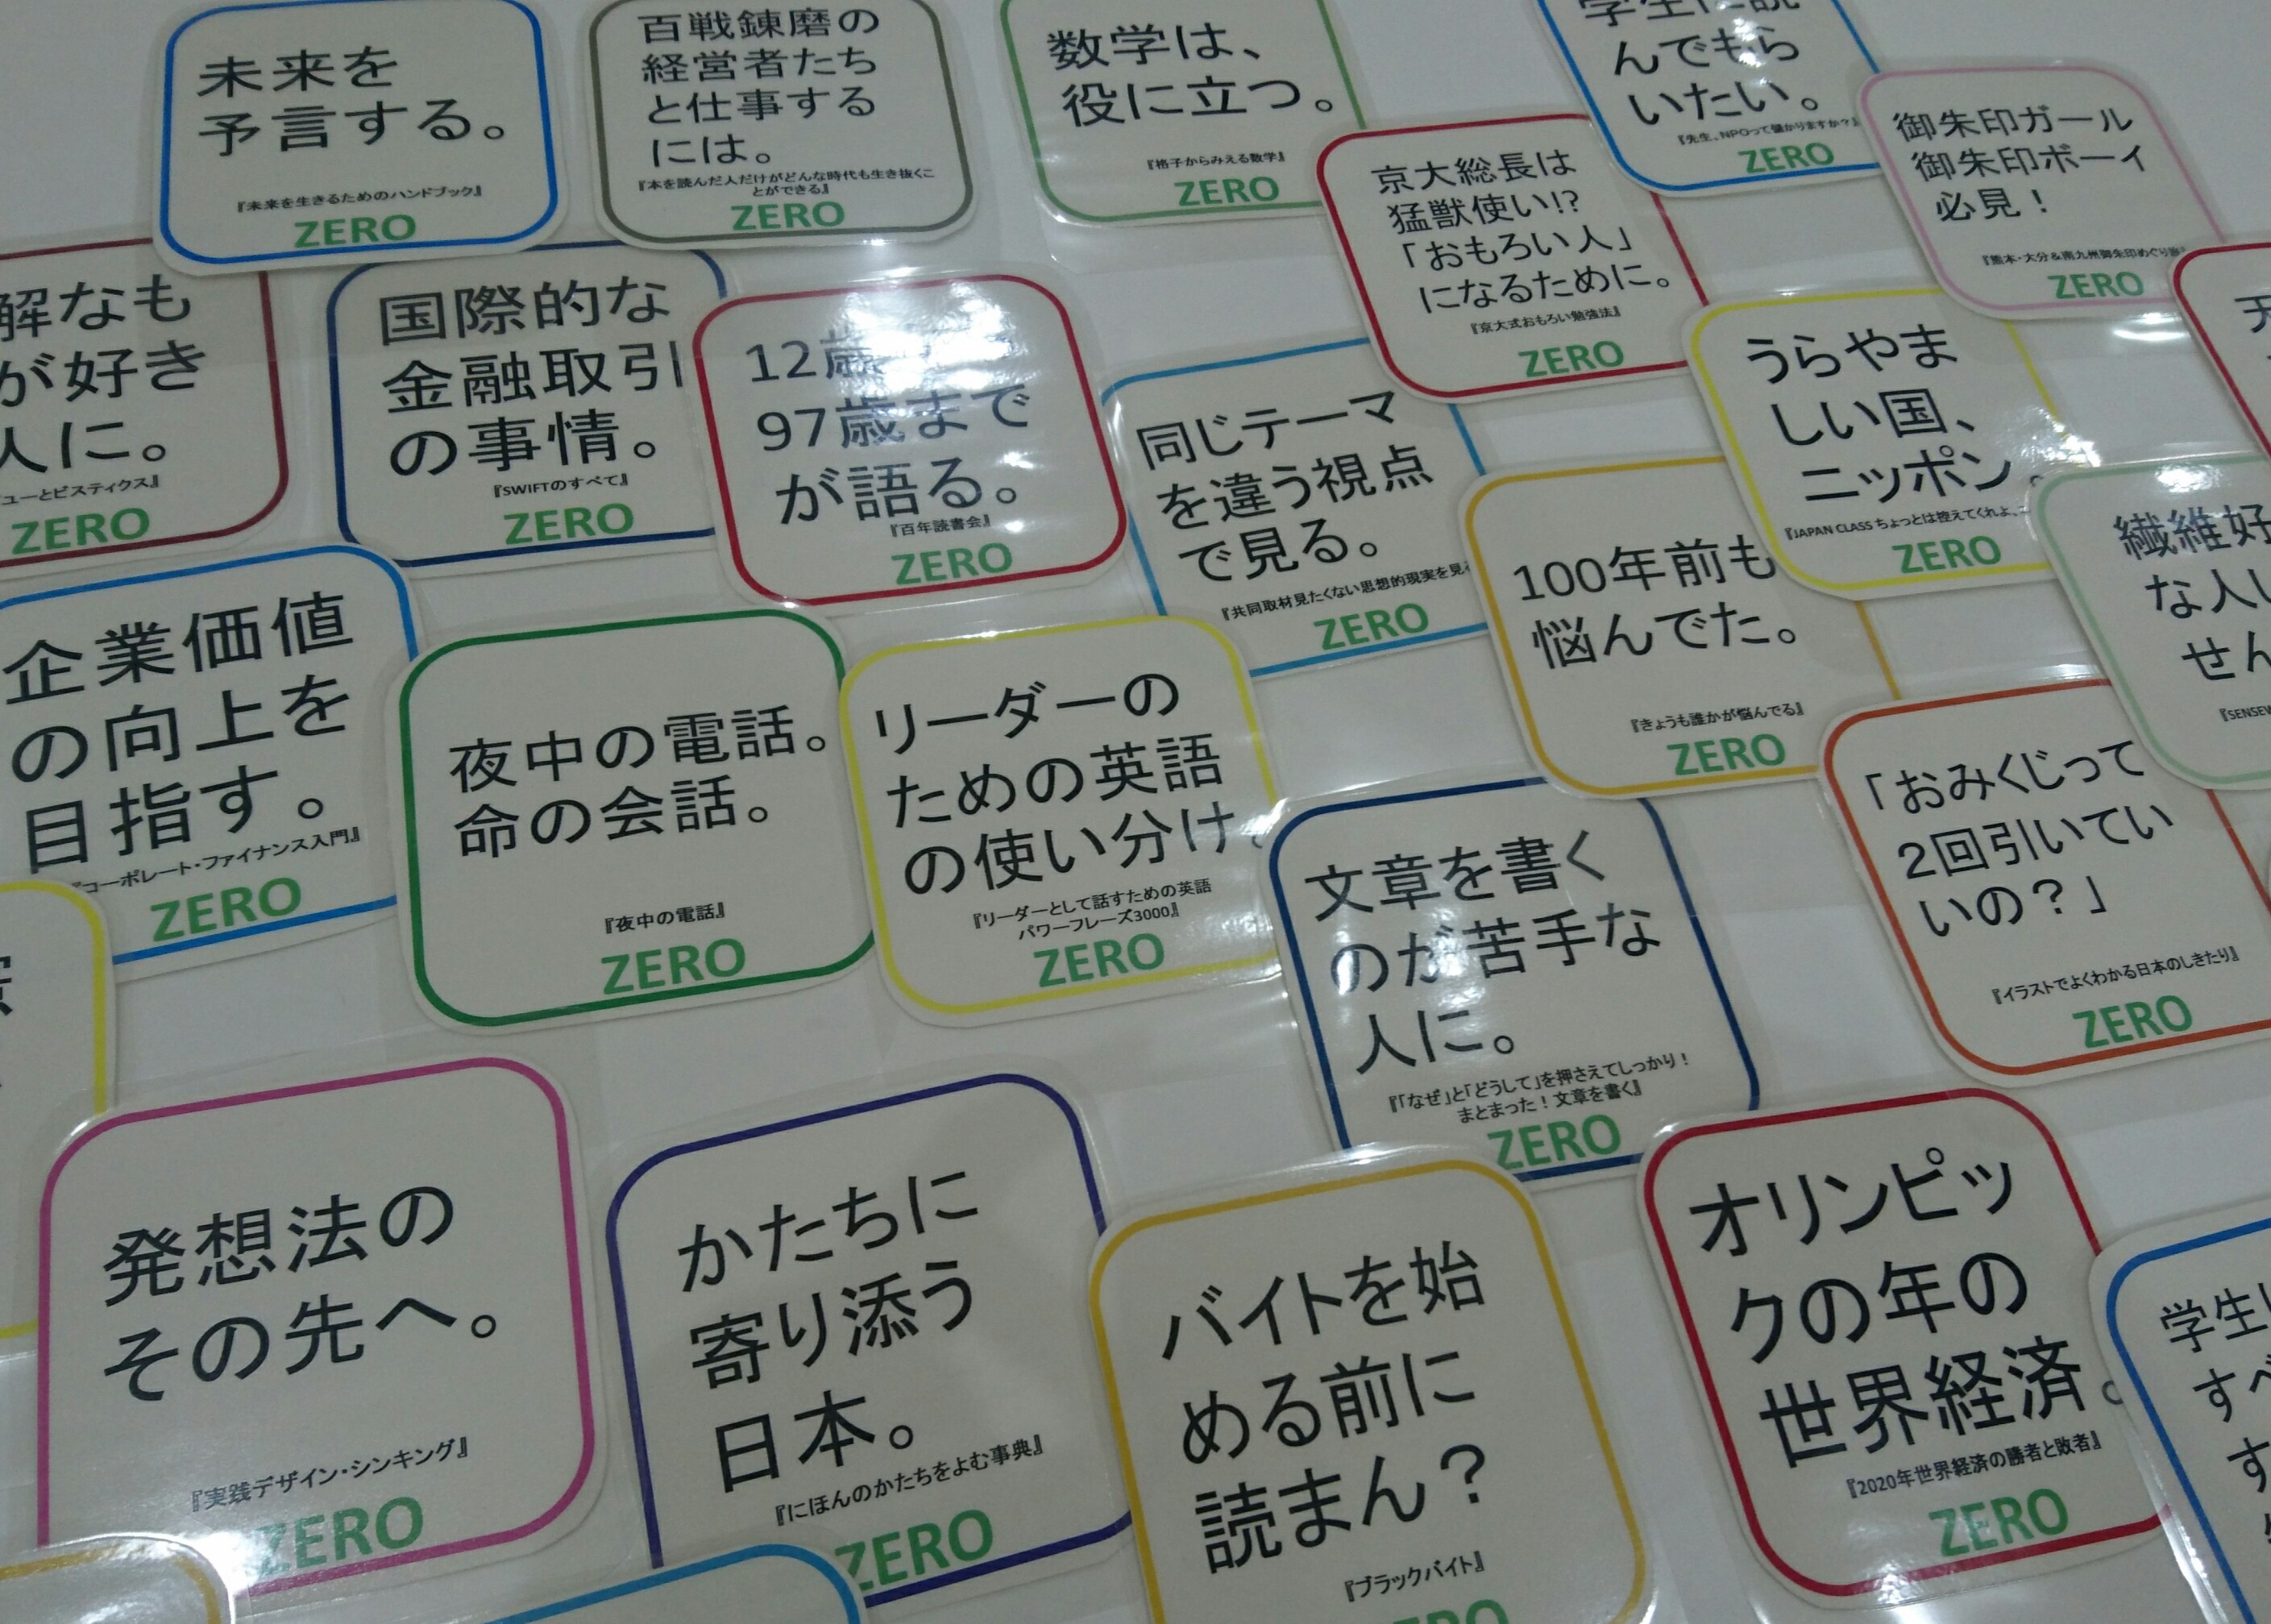 未来を
予言する。
『未来を生きるためのハンドブック』
ZERO
百戦錬磨の
経営者たち
と仕事する
には。
『本を読んだ人だけがどんな時代も生き抜くこ
とができる』
ZERO
数学は、
役に立つ。
『格子からみえる数学』
ZERO
んでもら
いたい。
『先生、NPOって儲かりますか?』
ZERO
御朱印ガール
御朱印ボーイ
必見!
『熊本・大分&南九州御朱印めぐり旅
ZERO
京大総長は
猛獣使い!?
「おもろい人」
になるために。
『京大式おもろい勉強法』
ZERO
解なも
が好き
人に。
ューとピスティクス』
ZERO
国際的な
金融取引
の事情。
『SWIFTのすべて』
ZERO
12歳
97歳まで
が語る。
『百年読書会』
ZERO
同じテーマ
を違う視点
で見る。
『共同取材見たくない思想的現実を見
ZERO
うらやま
しい国、
ニッポン。
『JAPAN CLASS ちょっとは控えてくれよ、
ZERO
100年前も
悩んでた。
『きょうも誰かが悩んでる』
ZERO
繊維好
な人
せん
企業価値
の向上を
目指す。
『コーポレート・ファイナンス入門』
ZERO
夜中の電話。
命の会話。
『夜中の電話』
ZERO
リーダーの
ための英語
の使い分け。
『リーダーとして話すための英語
パワーフレーズ3000』
ZERO
文章を書く
のが苦手な
人に。
『「なぜ」と「どうして」を押さえてしっかり!
まとまった!文章を書く』
ZERO
「おみくじって
2回引いてい
いの?」
『イラストでよくわかる日本のしきたり』
ZERO
発想法の
その先へ。
『実践デザイン・シンキング』
ZERO
かたちに
寄り添う
日本。
『にほんのかたちをよむ事典』
ZERO
バイトを始
める前に
読まん?
『ブラックバイト』
ZERO
オリンピッ
クの年の
世界経済。
『2020年世界経済の勝者と敗者』
ZERO
学生
すべ
す